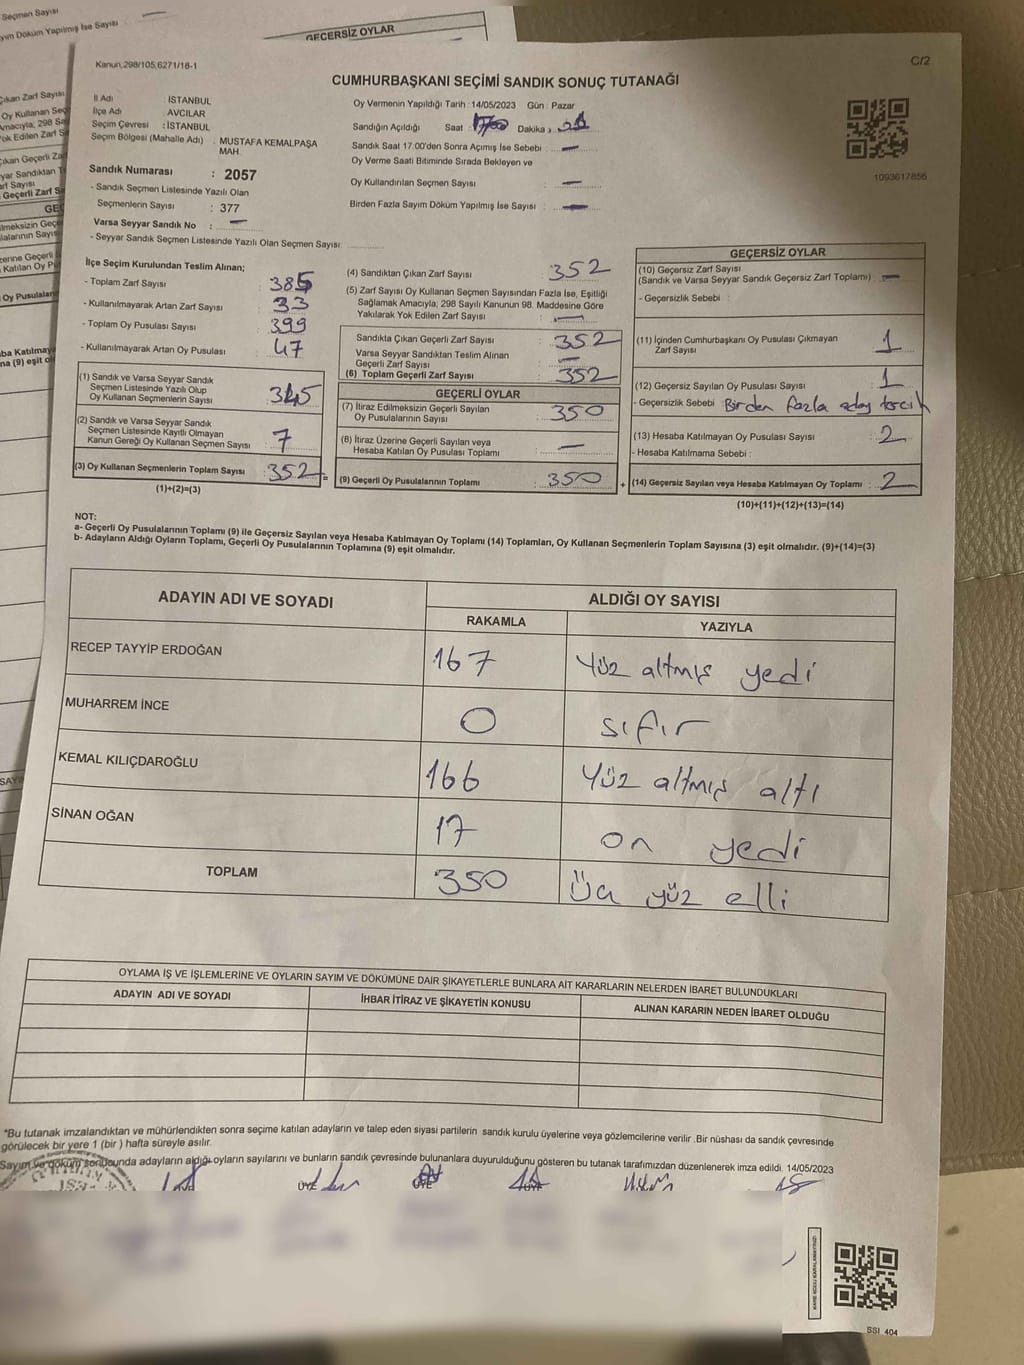 Seçmen Sayısı
yım Döküm Yapılmış İse Sayısı
GEÇERSİZ OYLAR
Kanun,298/105,6271/18-1
C/2
CUMHURBAŞKANI SEÇİMİ SANDIK SONUÇ TUTANAĞI
İl Adı : İSTANBUL
İlçe Adı : AVCILAR
Seçim Çevresi : İSTANBUL
Seçim Bölgesi (Mahalle Adı) : MUSTAFA KEMALPAŞA
MAH.
Sandık Numarası : 2057
- Sandık Seçmen Listesinde Yazılı Olan
Seçmenlerin Sayısı : 377
Varsa Seyyar Sandık No : —
- Seyyar Sandık Seçmen Listesinde Yazılı Olan Seçmen Sayısı:
Oy Vermenin Yapıldığı Tarih : 14/05/2023 Gün : Pazar
Sandığın Açıldığı Saat : 17/00 Dakika :
Sandık Saat 17.00'den Sonra Açımış İse Sebebi : —
Oy Verme Saati Bitiminde Sırada Bekleyen ve
Oy Kullandırılan Seçmen Sayısı : —
Birden Fazla Sayım Döküm Yapılmış İse Sayısı : —
1093617856
İlçe Seçim Kurulundan Teslim Alınan;
- Toplam Zarf Sayısı : 385
- Kullanılmayarak Artan Zarf Sayısı : 33
- Toplam Oy Pusulası Sayısı : 399
- Kullanılmayarak Artan Oy Pusulası : 47
(1) Sandık ve Varsa Seyyar Sandık
Seçmen Listesinde Yazılı Olup
Oy Kullanan Seçmenlerin Sayısı : 345
(2) Sandık ve Varsa Seyyar Sandık
Seçmen Listesinde Kayıtlı Olmayan
Kanun Gereği Oy Kullanan Seçmen Sayısı : 7
(3) Oy Kullanan Seçmenlerin Toplam Sayısı : 352 =
(1)+(2)=(3)
(4) Sandıktan Çıkan Zarf Sayısı : 352
(5) Zarf Sayısı Oy Kullanan Seçmen Sayısından Fazla İse, Eşitliği
Sağlamak Amacıyla; 298 Sayılı Kanunun 98. Maddesine Göre
Yakılarak Yok Edilen Zarf Sayısı : —
Sandıkta Çıkan Geçerli Zarf Sayısı : 352
Varsa Seyyar Sandıktan Teslim Alınan
Geçerli Zarf Sayısı : —
(6) Toplam Geçerli Zarf Sayısı : 352
GEÇERLİ OYLAR
(7) İtiraz Edilmeksizin Geçerli Sayılan
Oy Pusulalarının Sayısı : 350
(8) İtiraz Üzerine Geçerli Sayılan veya
Hesaba Katılan Oy Pusulası Toplamı : —
(9) Geçerli Oy Pusulalarının Toplamı : 350 +
GEÇERSİZ OYLAR
(10) Geçersiz Zarf Sayısı
(Sandık ve Varsa Seyyar Sandık Geçersiz Zarf Toplamı) : —
- Geçersizlik Sebebi :
(11) İçinden Cumhurbaşkanı Oy Pusulası Çıkmayan
Zarf Sayısı : 1
(12) Geçersiz Sayılan Oy Pusulası Sayısı : 1
- Geçersizlik Sebebi : Birden fazla aday tercih
(13) Hesaba Katılmayan Oy Pusulası Sayısı : 2
- Hesaba Katılmama Sebebi :
(14) Geçersiz Sayılan veya Hesaba Katılmayan Oy Toplamı : 2
(10)+(11)+(12)+(13)=(14)
NOT:
a- Geçerli Oy Pusulalarının Toplamı (9) ile Geçersiz Sayılan veya Hesaba Katılmayan Oy Toplamı (14) Toplamları, Oy Kullanan Seçmenlerin Toplam Sayısına (3) eşit olmalıdır. (9)+(14)=(3)
b- Adayların Aldığı Oyların Toplamı, Geçerli Oy Pusulalarının Toplamına (9) eşit olmalıdır.
ADAYIN ADI VE SOYADI ALDIĞI OY SAYISI
RAKAMLA YAZIYLA
RECEP TAYYİP ERDOĞAN 167 Yüz altmış yedi
MUHARREM İNCE 0 sıfır
KEMAL KILIÇDAROĞLU 166 Yüz altmış altı
SİNAN OĞAN 17 on yedi
TOPLAM 350 Üç yüz elli
OYLAMA İŞ VE İŞLEMLERİNE VE OYLARIN SAYIM VE DÖKÜMÜNE DAİR ŞİKAYETLERLE BUNLARA AİT KARARLARIN NELERDEN İBARET BULUNDUKLARI
ADAYIN ADI VE SOYADI İHBAR İTİRAZ VE ŞİKAYETİN KONUSU ALINAN KARARIN NEDEN İBARET OLDUĞU
*Bu tutanak imzalandıktan ve mühürlendikten sonra seçime katılan adayların ve talep eden siyasi partilerin sandık kurulu üyelerine veya gözlemcilerine verilir .Bir nüshası da sandık çevresinde
görülecek bir yere 1 (bir ) hafta süreyle asılır.
Sayım ve döküm sonucunda adayların aldığı oyların sayılarını ve bunların sandık çevresinde bulunanlara duyurulduğunu gösteren bu tutanak tarafımızdan düzenlenerek imza edildi. 14/05/2023
SSI 404